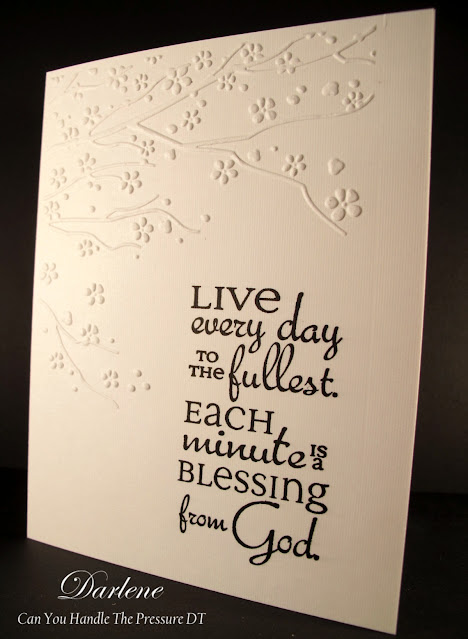 LIVe
every day
TO
THE fullest.
EaCH
minute is a
BLessing
from God.
Darlene
Can You Handle The Pressure DT